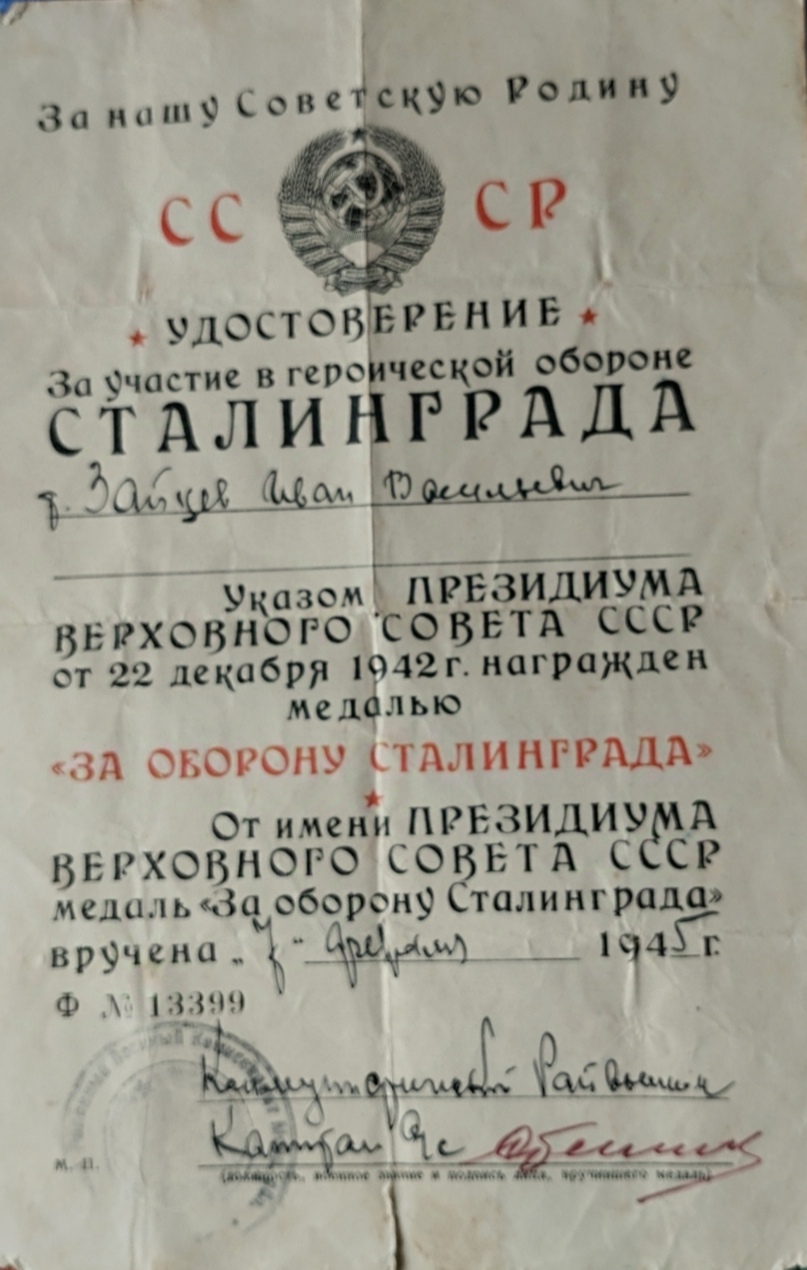 За нашу Советскую Родину
СС СР
УДОСТОВЕРЕНИЕ
За участие в героической обороне
СТАЛИНГРАДА
т. Зайцев Иван Васильевич
Указом ПРЕЗИДИУМА
ВЕРХОВНОГО СОВЕТА СССР
от 22 декабря 1942 г. награжден
медалью
«ЗА ОБОРОНУ СТАЛИНГРАДА»
От имени ПРЕЗИДИУМА
ВЕРХОВНОГО СОВЕТА СССР
медаль «За оборону Сталинграда»
вручена „7" февраля 1945 г.
Ф № 13399
Райвоенком
Капитан
М. П.
(должность, военное звание и подпись лица, вручившего медаль)